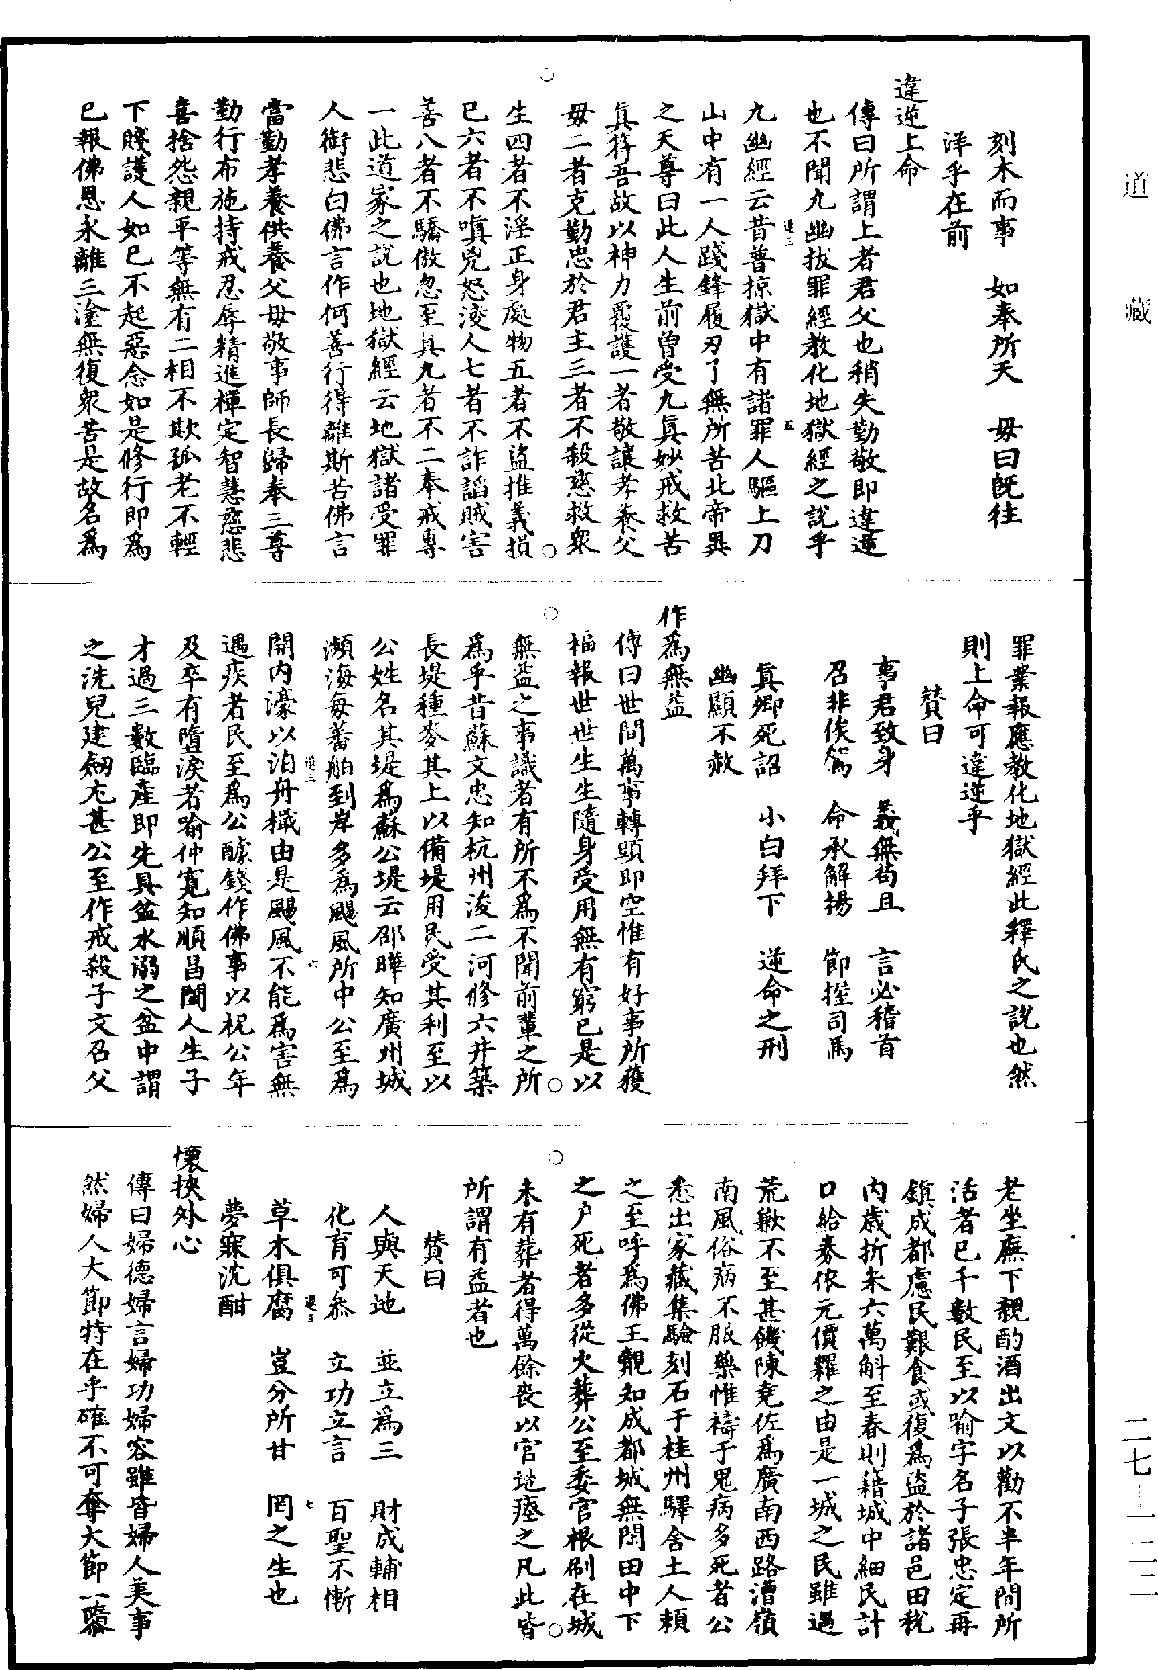 道藏
二七—一二二
刻木而事　如奉所天　毋曰旣往
洋乎在前
違逆上命
傳曰所謂上者君父也稍失勤敬即違逆
也不聞九幽拔罪經教化地獄經之說乎
九幽經云昔普掠獄中有諸罪人驅上刀
山中有一人踐鋒履刃了無所苦北帝異
之天尊曰此人生前曾受九眞妙戒救苦
眞符吾故以神力覆護一者敬讓孝養父
毋二者克勤忠於君主三者不殺慈救衆
生四者不淫正身處物五者不盜推義損
已六者不嗔兇怒凌人七者不詐謟賊害
善八者不驕傲忽至其九者不二奉戒專
一此道家之說也地獄經云地獄諸受罪
人銜悲白佛言作何善行得離斯苦佛言
當勤孝養供養父毋敬事師長歸奉三尊
勤行布施持戒忍辱精進禪定智慧慈悲
喜捨怨親平等無有二相不欺孤老不輕
下賤護人如已不起惡念如是修行即爲
已報佛恩永離三塗無復衆苦是故名爲
罪業報應教化地獄經此釋氏之說也然
則上命可違逆乎
贊曰
事君致身　義無苟且　言必稽首
召非俟駕　命承解揚　節握司馬
眞卿死詔　小白拜下　逆命之刑
幽顯不赦
作爲無益
傳曰世間萬事轉頭即空惟有好事所獲
福報世世生生隨身受用無有窮已是以
無益之事識者有所不爲不聞前輩之所
爲乎昔蘇文忠知杭州浚二河修六井築
長堤種麥其上以備堤用民受其利至以
公姓名其堤爲蘇公堤云邵曄知廣州城
瀕海每蕃舶到岸多爲颶風所中公至爲
開內濠以泊舟檝由是颶風不能爲害無
遇疾者民至爲公醵錢作佛事以祝公年
及卒有墮淚者喻仲寬知順昌閩人生子
才過三數臨產即先具盆水溺之盆中謂
之洗兒建劒尤甚公至作戒殺子文召父
老坐廡下親酌酒出文以勸不半年間所
活者已千數民至以喻字名子張忠定再
鎮成都慮民艱食或復爲盜於諸邑田稅
内歲折米六萬斛至春則籍城中細民計
口給券依元價糶之由是一城之民雖遇
荒歉不至甚饑陳堯佐爲廣南西路漕嶺
南風俗病不服藥惟禱于鬼病多死者公
悉出家藏集驗刻石于桂州驛舍土人賴
之至呼爲佛王覿知成都城無閒田中下
之户死者多從火葬公至委官根刷在城
未有葬者得萬餘喪以官地瘞之凡此皆
所謂有益者也
贊曰
人與天地　並立爲三　財成輔相
化育可叅　立功立言　百聖不慚
草木俱腐　豈分所甘　罔之生也
夢寐沈酣
懷挾外心
傳曰婦德婦言婦功婦容雖皆婦人美事
然婦人大節特在乎確不可奪大節一隳